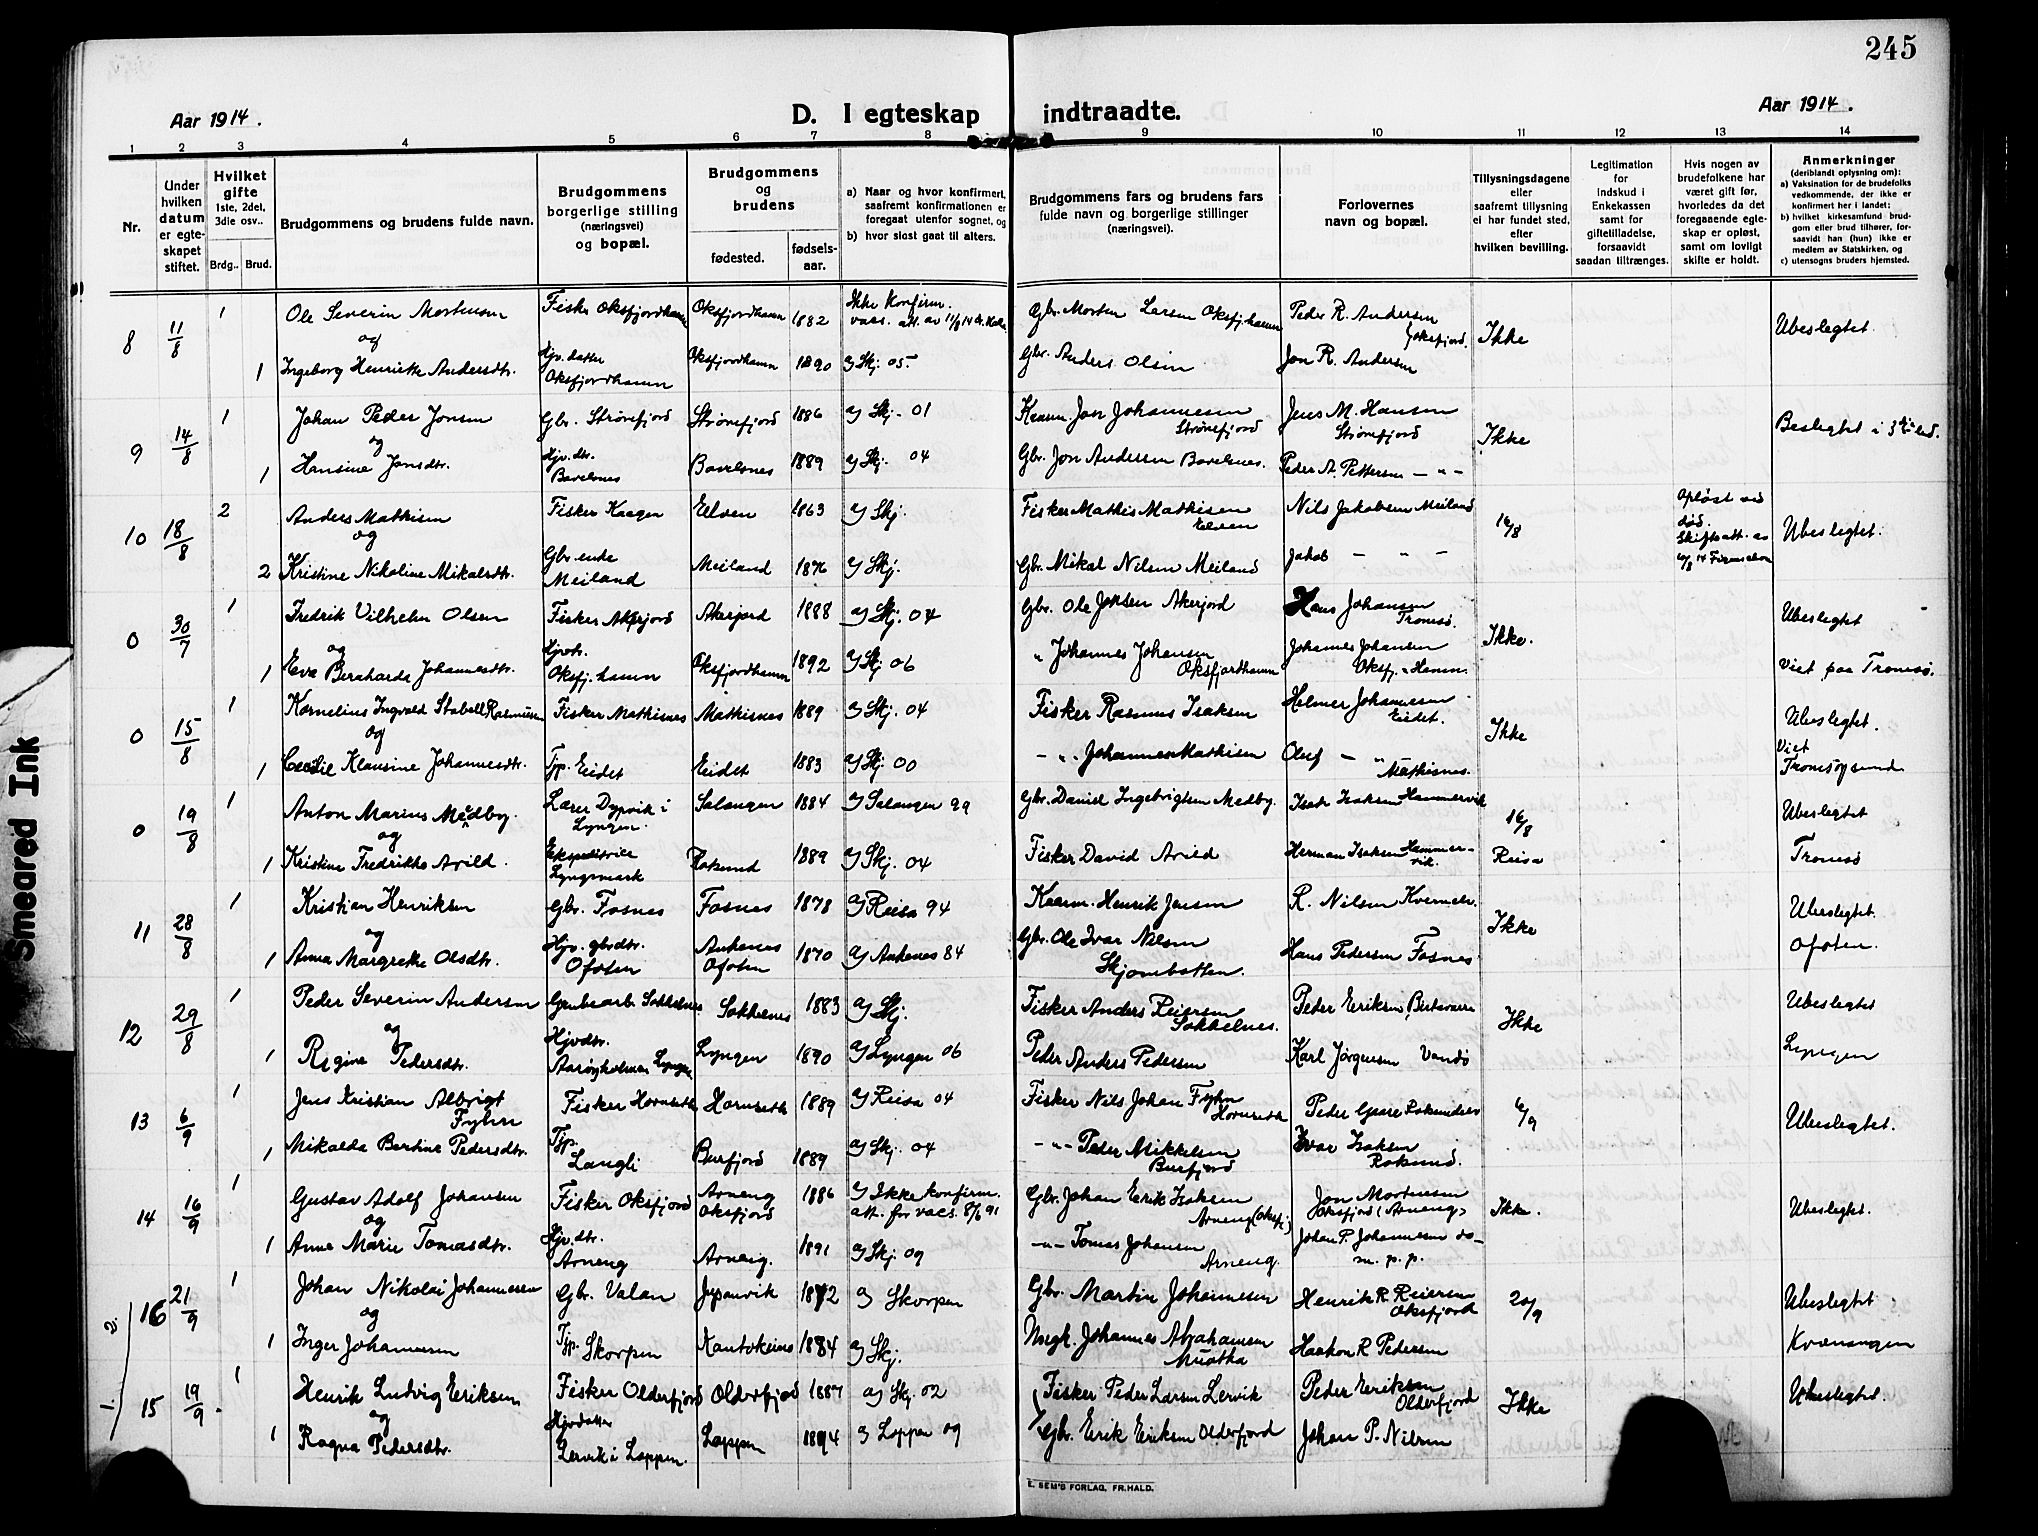 245
Aar 1914.
D. I egteskap indtraadte.
Aar 1914.
1 2 3 4 5 6 7 8 9 10 11 12 13 14
Nr.
Under hvilken datum er egteskapet stiftet.
Hvilket gifte 1ste, 2del, 3die osv..
Brdg.. Brud.
Brudgommens og brudens fulde navn.
Brudgommens borgerlige stilling (næringsvei) og bopæl.
Brudgommens og brudens
fødested. fødselsaar.
a) Naar og hvor konfirmert, saafremt konfirmationen er foregaat utenfor sognet, og
b) hvor sidst gaat til alters.
Brudgommens fars og brudens fars fulde navn og borgerlige stillinger (næringsvei).
Forlovernes navn og bopæl.
Tillysningsdagene eller saafremt tillysning ei har fundet sted, efter hvilken bevilling.
Legitimation for Indskud i Enkekassen samt for giftetilladelse, forsaavidt saadan tiltrænges.
Hvis nogen av brudefolkene har været gift før, hvorledes da det foregaaende egteskap er opløst, samt om lovligt skifte er holdt.
Anmerkninger (deriblandt oplysning om):
a) Vaksination for de brudefolks vedkommende, der ikke er konfirmert her i landet;
b) hvilket kirkesamfund brudgom eller brud tilhører, forsaavidt han (hun) ikke er medlem av Statskirken, og
c) utensogns bruders hjemsted.
8 11/8 1 Ole Severin Mortensen Fisker Oksfjordhamn Oksfjordhamn 1882 Ikke konfirm. Gbr. Morten Larsen Oksfj.hamn Peder R. Andersen Oksfjord. Ikke Ubeslegtet
og
1 Ingeborg Henriette Andersdtr. Hjv. datter Oksfjordhamn Oksfjordhamn 1890 a) Skj. 05 Gbr. Anders Olsen Jon R. Andersen
9 14/8 1 Johan Peder Jonsen Gbr. Strømfjord Strømfjord 1886 a) Skj. 01 Kaarm. Jon Johannesen Strømfjord Jens M. Hansen Strømfjord Ikke Beslegtet i 3die led.
og
1 Hansine Jonsdtr. Hjv. dtr. Bavelsnes Bavelsnes 1889 a) Skj. 04 Gbr. Jon Andersen Bavelsnes. Peder A. Pettersen — " —
10 18/8 2 Anders Mathisen Fisker Kaagen Elven 1863 a) Skj. Fisker Mathis Mathisen Elven Nils Jakobsen Meiland 16/8 Opløst ved død. Skifteatt. av Ubeslegtet.
og
2 Kristine Nikoline Mikalsdtr. Gbr. enke Meiland Meiland 1876 a) Skj. Gbr. Mikal Nilsen Meiland Jakob — " —
0 30/7 1 Fredrik Vilhelm Olsen Fisker Akerjord Akerjord 1888 a) Skj. 04 Gbr. Ole Jonsen Akerjord Hans Johansen Tromsø. Ikke. Ubeslegtet
og
1 Eva Bernharde Johannesdtr. Hjvdtr. Oksfj.hamn Oksfjordhamn 1892 a) Skj 06 " Johannes Johansen Oksfjordhamn Johannes Johansen Oksfj.-Hamn. Viet paa Tromsø.
0 15/8 1 Kornelius Ingvald Stabell Rasmussen Fisker Mathisnes Mathisnes 1889 a) Skj. 04 Fisker Rasmus Isaksen Helmer Johannesen Eidet. Ikke Ubeslegtet.
og
1 Cecilie Klausine Johannesdtr. Tjp. Eidet Eidet 1883 a) Skj. 00 — " — Johannes Mathisen Oluf — " — Mathisnes. Viet Tromsøysund
0 19/8 1 Anton Marius Medby. Lærer Dypvik i Lyngen. Salangen 1884 a) Salangen 99 Gbr. Daniel Ingebrigtsen Medby. Isak Isaksen Hammervik 16/8 Ubeslegtet
og
1 Kristine Fredrikke Arild. Lyngsmark Roksund 1889 a) Skj. 04 Fisker David Arild Herman Isaksen Hammervik. Reisa Tromsø
11 28/8 1 Kristian Henriksen Gbr. Fosnes Fosnes 1878 a) Reisa 94 Kaarm. Henrik Jensen R. Nilsen Ikke Ubeslegtet.
og
1 Anna Margrethe Olsdtr. Hjv. gbrdtr. Ofoten Ankenes Ofoten 1870 a) Ankenes 84 Gbr. Ole Ivar Nilsen Skjombotten. Hans Pedersen Fosnes Ofoten.
12 29/8 1 Peder Severin Andersen Grubearb. Sokkelnes Sokkelnes 1883 a) Skj. Fisker Anders Reiersen Sokkelnes. Peder Eriksen Birtavarre Ikke Ubeslegtet
og
1 Regine Pedersdtr. Hjvdtr. Aarøyholmen Lyngen Lyngen 1890 a) Lyngen 06 Peder Anders Pedersen Karl Jørgensen Vandø Lyngen
13 6/9 1 Jens Kristian Albrigt Fyhn Fisker Hornseth Hornseth 1889 a) Reisa 04 Fisker Nils Johan Fyhn Hornseth Peder Gaare Roksundnes 6/9 Ubeslegtet.
1 Mikalda Bertine Pedersdtr. Tjp. Langli Burfjord 1889 a) Skj. 04 — " — Peder Mikkelsen Burfjord Ivar Isaksen Roksund.
14 16/9 1 Gustav Adolf Johansen Fisker Oksfjord Arneng Oksfjord 1886 a) Ikke konfirm. att. for vacs. 8/6 91 Gbr. Johan Erik Isaksen Arneng (Oksfj) Jon Mortensen Oksfjord (Arneng) Ikke. Ubeslegtet.
og
1 Anne Marie Tomasdtr. Hjv. dtr. Arneng Arneng. 1891 a) Skj 09 — " — Tomas Johansen Arneng. Johan P. Johannesen do — m. p. p.
2. 16 21/9 1 Johan Nikolai Johannesen Gbr. Valan Jøpanvik 1872 a) Skorpen Gbr. Martin Johannesen Henrik R. Reiersen Oksfjord 20/9 Ubeslegtet
og
1 Inger Johannesen Tjp. Skorpen Kautokeino 1884 a) Skj. Johannes Abrahamsen Muotka Haakon R Pedersen Kvænangen
1. 15 19/9 1 Henrik Ludvig Eriksen Fisker Olderfjord Olderfjord 1887 a) Skj 02 Fisker Peder Larsen Lervik Peder Eriksen Olderfjord Ikke Ubeslegtet.
og
1 Ragna Pedersdtr. Hjvdatter Lervik i Loppen. Loppen 1894 a) Loppen 09 Gbr. Erik Eriksen Olderfjord Johan P. Nilsen
E. SEM'S FORLAG, FR.HALD.
Smeared Ink